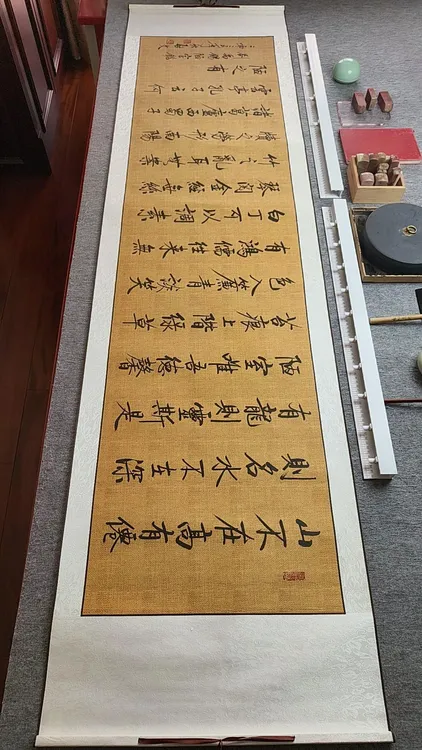 山不在高有僊
則名水不在深
有龍則靈斯是
陋室唯吾德馨
苔痕上階綠草
色入簾青談笑
有鴻儒往來無
白丁可以調素
琴閱金經無絲
竹之亂耳無案
牘之勞形南陽
諸葛廬西蜀子
雲亭孔子云何
陋之有